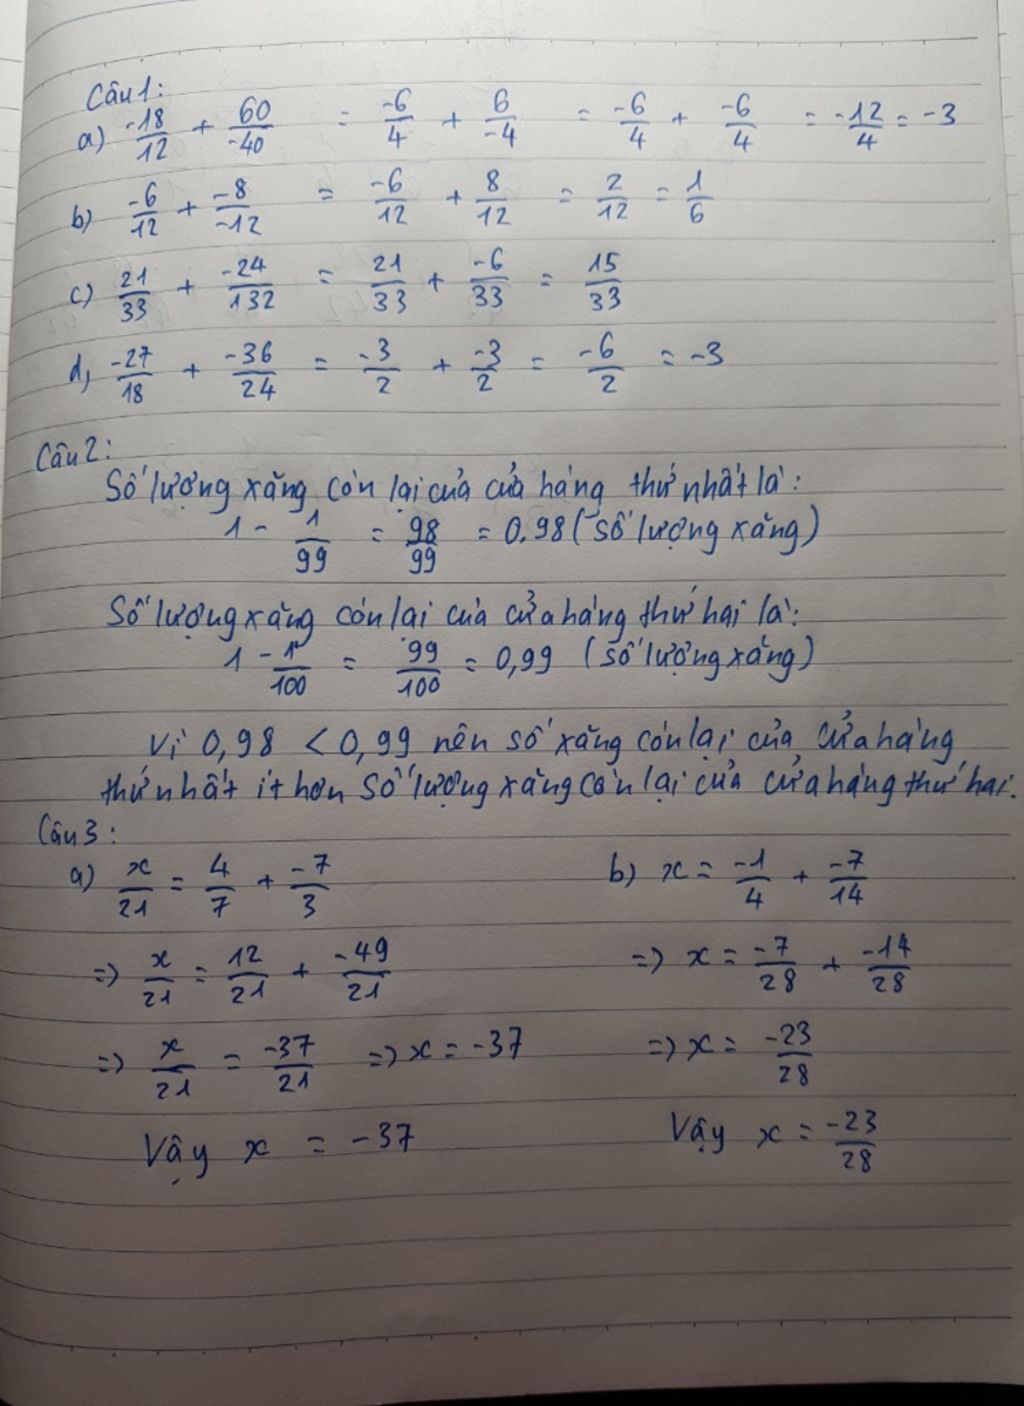 Câu 1:
a) -18/12 + 60/-40 = -6/4 + 6/-4 = -6/4 + -6/4 = -12/4 = -3
b) -6/12 + -8/-12 = -6/12 + 8/12 = 2/12 = 1/6
c) 21/33 + -24/132 = 21/33 + -6/33 = 15/33
d, -27/18 + -36/24 = -3/2 + -3/2 = -6/2 = -3
Câu 2:
Số lượng xăng còn lại của cửa hàng thứ nhất là:
1 - 1/99 = 98/99 = 0.98 (số lượng xăng)
Số lượng xăng còn lại của cửa hàng thứ hai là:
1 - 1/100 = 99/100 = 0,99 (số lượng xăng)
Vì 0,98 < 0,99 nên số xăng còn lại của cửa hàng
thứ nhất ít hơn số lượng xăng còn lại của cửa hàng thứ hai.
Câu 3:
a) x/21 = 4/7 + -7/3 b) x = -1/4 + -7/14
=> x/21 = 12/21 + -49/21 => x = -7/28 + -14/28
=> x/21 = -37/21 => x = -37 => x = -23/28
Vậy x = -37 Vậy x = -23/28